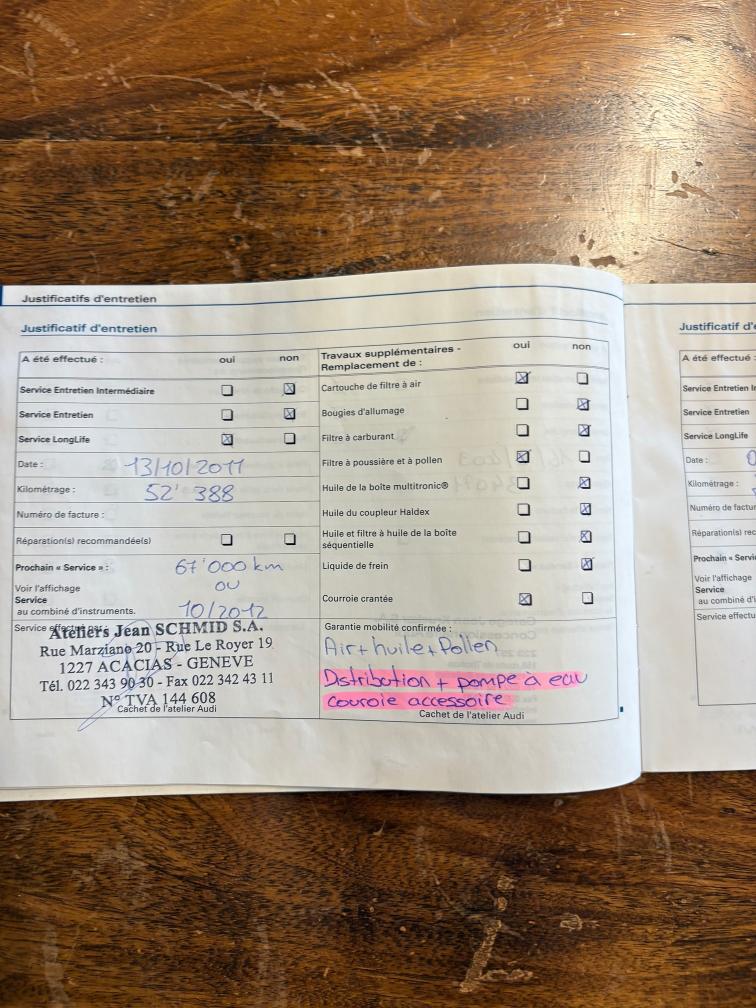 Justificatifs d'entretien
Justificatif d'entretien
A été effectué : oui non
Service Entretien Intermédiaire
Service Entretien
Service LongLife
Date : 13/10/2011
Kilométrage : 52'388
Numéro de facture :
Réparation(s) recommandée(s)
Prochain « Service » : 67'000 km
Voir l'affichage ou
Service
au combiné d'instruments. 10/2012
Service effectué par :
Ateliers Jean SCHMID S.A.
Rue Marziano 20 - Rue Le Royer 19
1227 ACACIAS - GENEVE
Tél. 022 343 90 30 - Fax 022 342 43 11
N° TVA 144 608
Cachet de l'atelier Audi
Travaux supplémentaires - oui non
Remplacement de :
Cartouche de filtre à air
Bougies d'allumage
Filtre à carburant
Filtre à poussière et à pollen
Huile de la boîte multitronic®
Huile du coupleur Haldex
Huile et filtre à huile de la boîte
séquentielle
Liquide de frein
Courroie crantée
Garantie mobilité confirmée :
Air + huile + Pollen
Distribution + pompe à eau
couroie accessoire
Cachet de l'atelier Audi
Justificatif d'
A été effectué :
Service Entretien
Service Entretien
Service LongLife
Date :
Kilométrage :
Numéro de
Réparation(s)
Prochain «
Voir l'affichage
Service
au combiné
Service